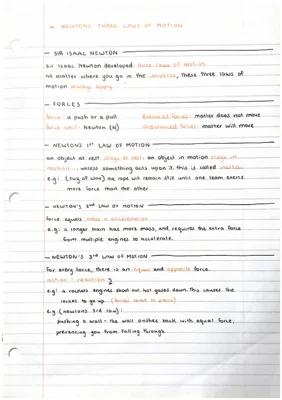 → NEWTONS THREE LAWS OF MOTION
SIR ISAAC NEWTON
Sir Isaac Newton developed three laws of motion
no matter where you go in the universe, these three laws of
motion always apply
FORCES
force : a push or a pull
Balanced forces: matter does not move
force unit: Newton (N)
Unbalanced forces: matter will move
NEWTON'S 1ST LAW OF MOTION
an object at rest stays at rest. an object in motion stays in
motion... unless something acts upon it. this is called inertia.
e.g: (tug of war) the rope will remain still until one team exerts
more force than the other.
NEWTON'S 2nd LAW OF MOTION
force equals mass x acceleration
e.g. a longer train has more mass, and requires the extra force
from multiple engines to accelerate.
NEWTON'S 3rd LAW OF MOTION
For every force, there is an equal and opposite force.
action : reaction
e.g: a rockets engines shoot out hot gases down. this causes the
rocket to go up. (forces come in pairs)
e.g (newtons 3rd law):
pushing a wall: the wall pushes back with equal force,
preventing you from falling through.